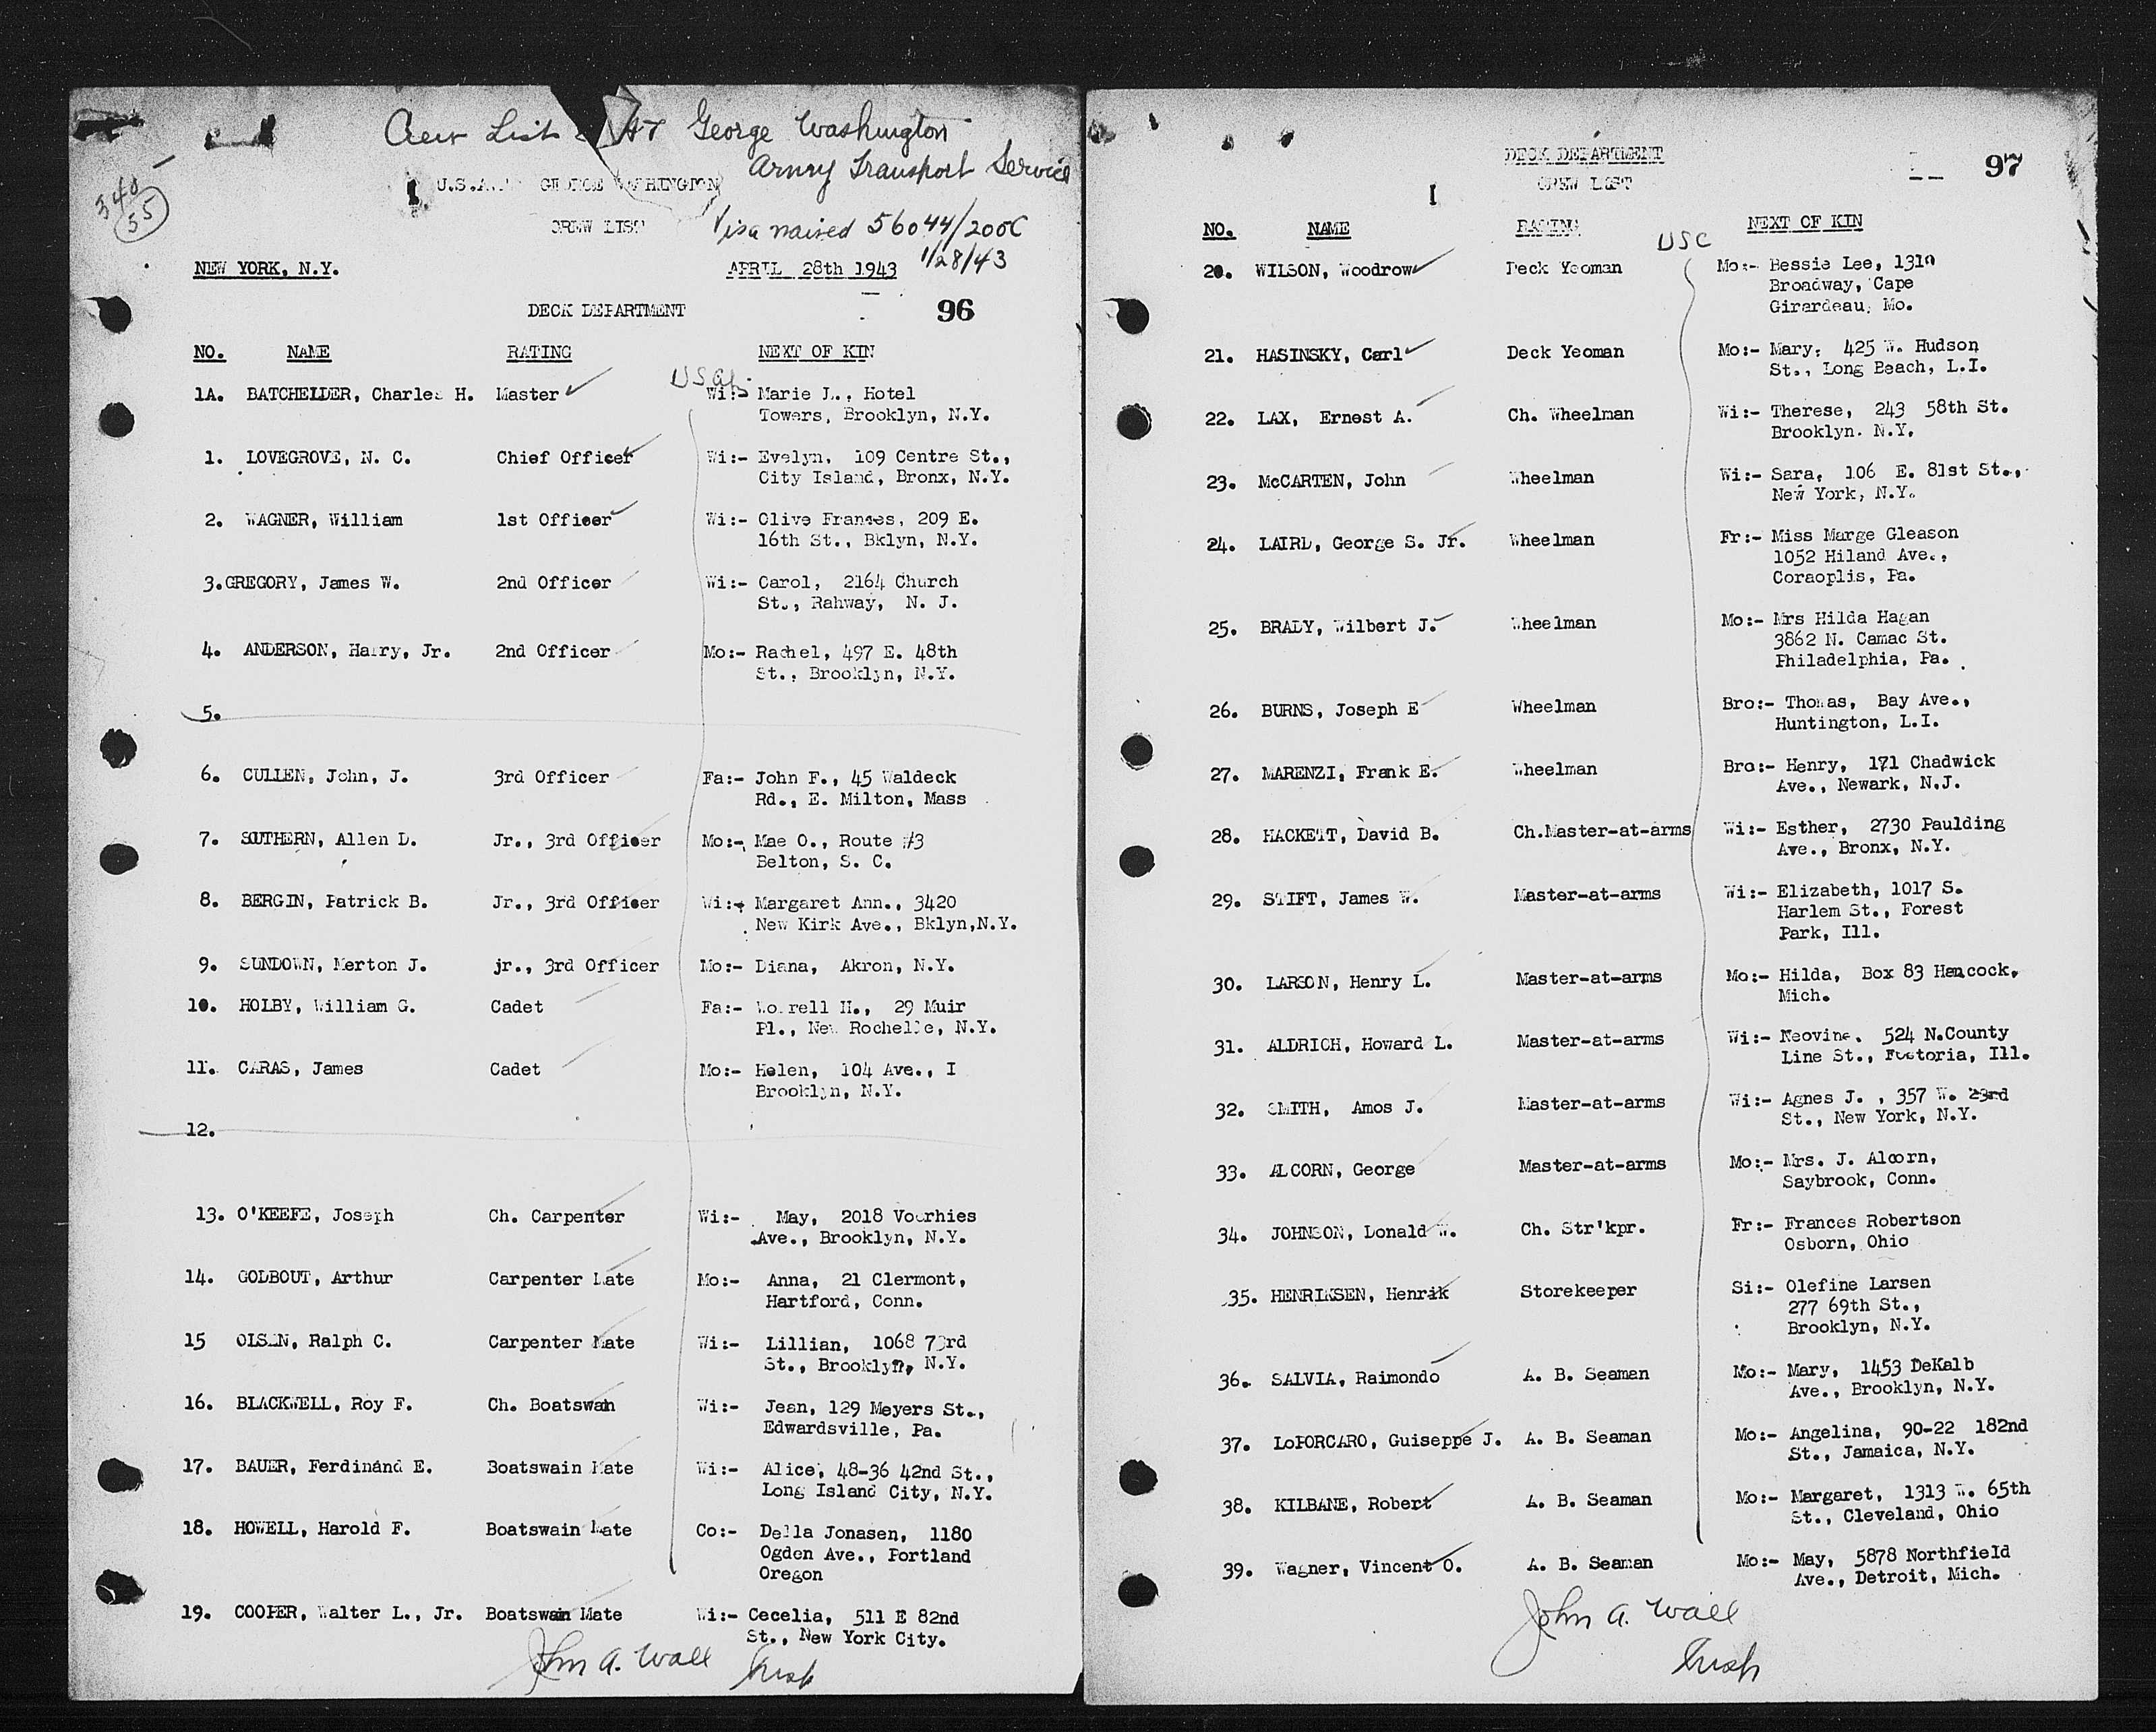 Crew List George Washington
Army Transport Service
U.S.A.T. GEORGE WASHINGTON
CREW LIST
Visa waived 56044/200C
1/28/43
340
55
NEW YORK, N.Y. APRIL 28th 1943
DECK DEPARTMENT 96
NO. NAME RATING NEXT OF KIN
USC
1A. BATCHELDER, Charles H. Master Wi:- Marie L., Hotel
Towers, Brooklyn, N.Y.
1. LOVEGROVE, N. C. Chief Officer Wi:- Evelyn, 109 Centre St.,
City Island, Bronx, N.Y.
2. WAGNER, William 1st Officer Wi:- Olive Frances, 209 E.
16th St., Bklyn, N.Y.
3. GREGORY, James W. 2nd Officer Wi:- Carol, 2164 Church
St., Rahway, N. J.
4. ANDERSON, Harry, Jr. 2nd Officer Mo:- Rachel, 497 E. 48th
St., Brooklyn, N.Y.
5.
6. CULLEN, John, J. 3rd Officer Fa:- John F., 45 Waldeck
Rd., E. Milton, Mass
7. SOUTHERN, Allen D. Jr., 3rd Officer Mo:- Mae O., Route #3
Belton, S. C.
8. BERGIN, Patrick B. Jr., 3rd Officer Wi:- Margaret Ann., 3420
New Kirk Ave., Bklyn,N.Y.
9. SUNDOWN, Merton J. jr., 3rd Officer Mo:- Diana, Akron, N.Y.
10. HOLBY, William G. Cadet Fa:- Worrell H., 29 Muir
Pl., New Rochelle, N.Y.
11. CARAS, James Cadet Mo:- Helen, 104 Ave., I
Brooklyn, N.Y.
12.
13. O'KEEFE, Joseph Ch. Carpenter Wi:- May, 2018 Voorhies
Ave., Brooklyn, N.Y.
14. GODBOUT, Arthur Carpenter Mate Mo:- Anna, 21 Clermont,
Hartford, Conn.
15 OLSEN, Ralph C. Carpenter Mate Wi:- Lillian, 1068 73rd
St., Brooklyn, N.Y.
16. BLACKWELL, Roy F. Ch. Boatswan Wi:- Jean, 129 Meyers St.,
Edwardsville, Pa.
17. BAUER, Ferdinand E. Boatswain Mate Wi:- Alice, 48-36 42nd St.,
Long Island City, N.Y.
18. HOWELL, Harold F. Boatswain Mate Co:- Della Jonasen, 1180
Ogden Ave., Portland
Oregon
19. COOPER, Walter L., Jr. Boatswain Mate Wi:- Cecelia, 511 E 82nd
St., New York City.
John A. Wall
DECK DEPARTMENT
CREW LIST 97
NO. NAME RATING NEXT OF KIN
USC
20. WILSON, Woodrow Deck Yeoman Mo:- Bessie Lee, 1310
Broadway, Cape
Girardeau, Mo.
21. HASINSKY, Carl Deck Yeoman Mo:- Mary, 425 W. Hudson
St., Long Beach, L.I.
22. LAX, Ernest A. Ch. Wheelman Wi:- Therese, 243 58th St.
Brooklyn. N.Y.
23. McCARTEN, John Wheelman Wi:- Sara, 106 E. 81st St.,
New York, N.Y.
24. LAIRD, George S. Jr. Wheelman Fr:- Miss Marge Gleason
1052 Hiland Ave.,
Coraoplis, Pa.
25. BRADY, Wilbert J. Wheelman Mo:- Mrs Hilda Hagan
3862 N. Camac St.
Philadelphia, Pa.
26. BURNS, Joseph E Wheelman Bro:- Thomas, Bay Ave.,
Huntington, L.I.
27. MARENZI, Frank E. Wheelman Bro:- Henry, 171 Chadwick
Ave., Newark, N.J.
28. HACKETT, David B. Ch.Master-at-arms Wi:- Esther, 2730 Paulding
Ave., Bronx, N.Y.
29. STIFT, James W. Master-at-arms Wi:- Elizabeth, 1017 S.
Harlem St., Forest
Park, Ill.
30. LARSON, Henry L. Master-at-arms Mo:- Hilda, Box 83 Hancock,
Mich.
31. ALDRICH, Howard L. Master-at-arms Wi:- Neovine. 524 N.County
Line St., Fostoria, Ill.
32. SMITH, Amos J. Master-at-arms Wi:- Agnes J. , 357 W. 23rd
St., New York, N.Y.
33. ALCORN, George Master-at-arms Mo:- Mrs. J. Alcorn,
Saybrook, Conn.
34. JOHNSON, Donald W. Ch. Str'kpr. Fr:- Frances Robertson
Osborn, Ohio
35. HENRIKSEN, Henrik Storekeeper Si:- Olefine Larsen
277 69th St.,
Brooklyn, N.Y.
36. SALVIA, Raimondo A. B. Seaman Mo:- Mary, 1453 DeKalb
Ave., Brooklyn, N.Y.
37. LoPORCARO, Guiseppe J. A. B. Seaman Mo:- Angelina, 90-22 182nd
St., Jamaica, N.Y.
38. KILBANE, Robert A. B. Seaman Mo:- Margaret, 1313 W. 65th
St., Cleveland, Ohio
39. Wagner, Vincent O. A. B. Seaman Mo:- May, 5878 Northfield
Ave., Detroit, Mich.
John A. Wall